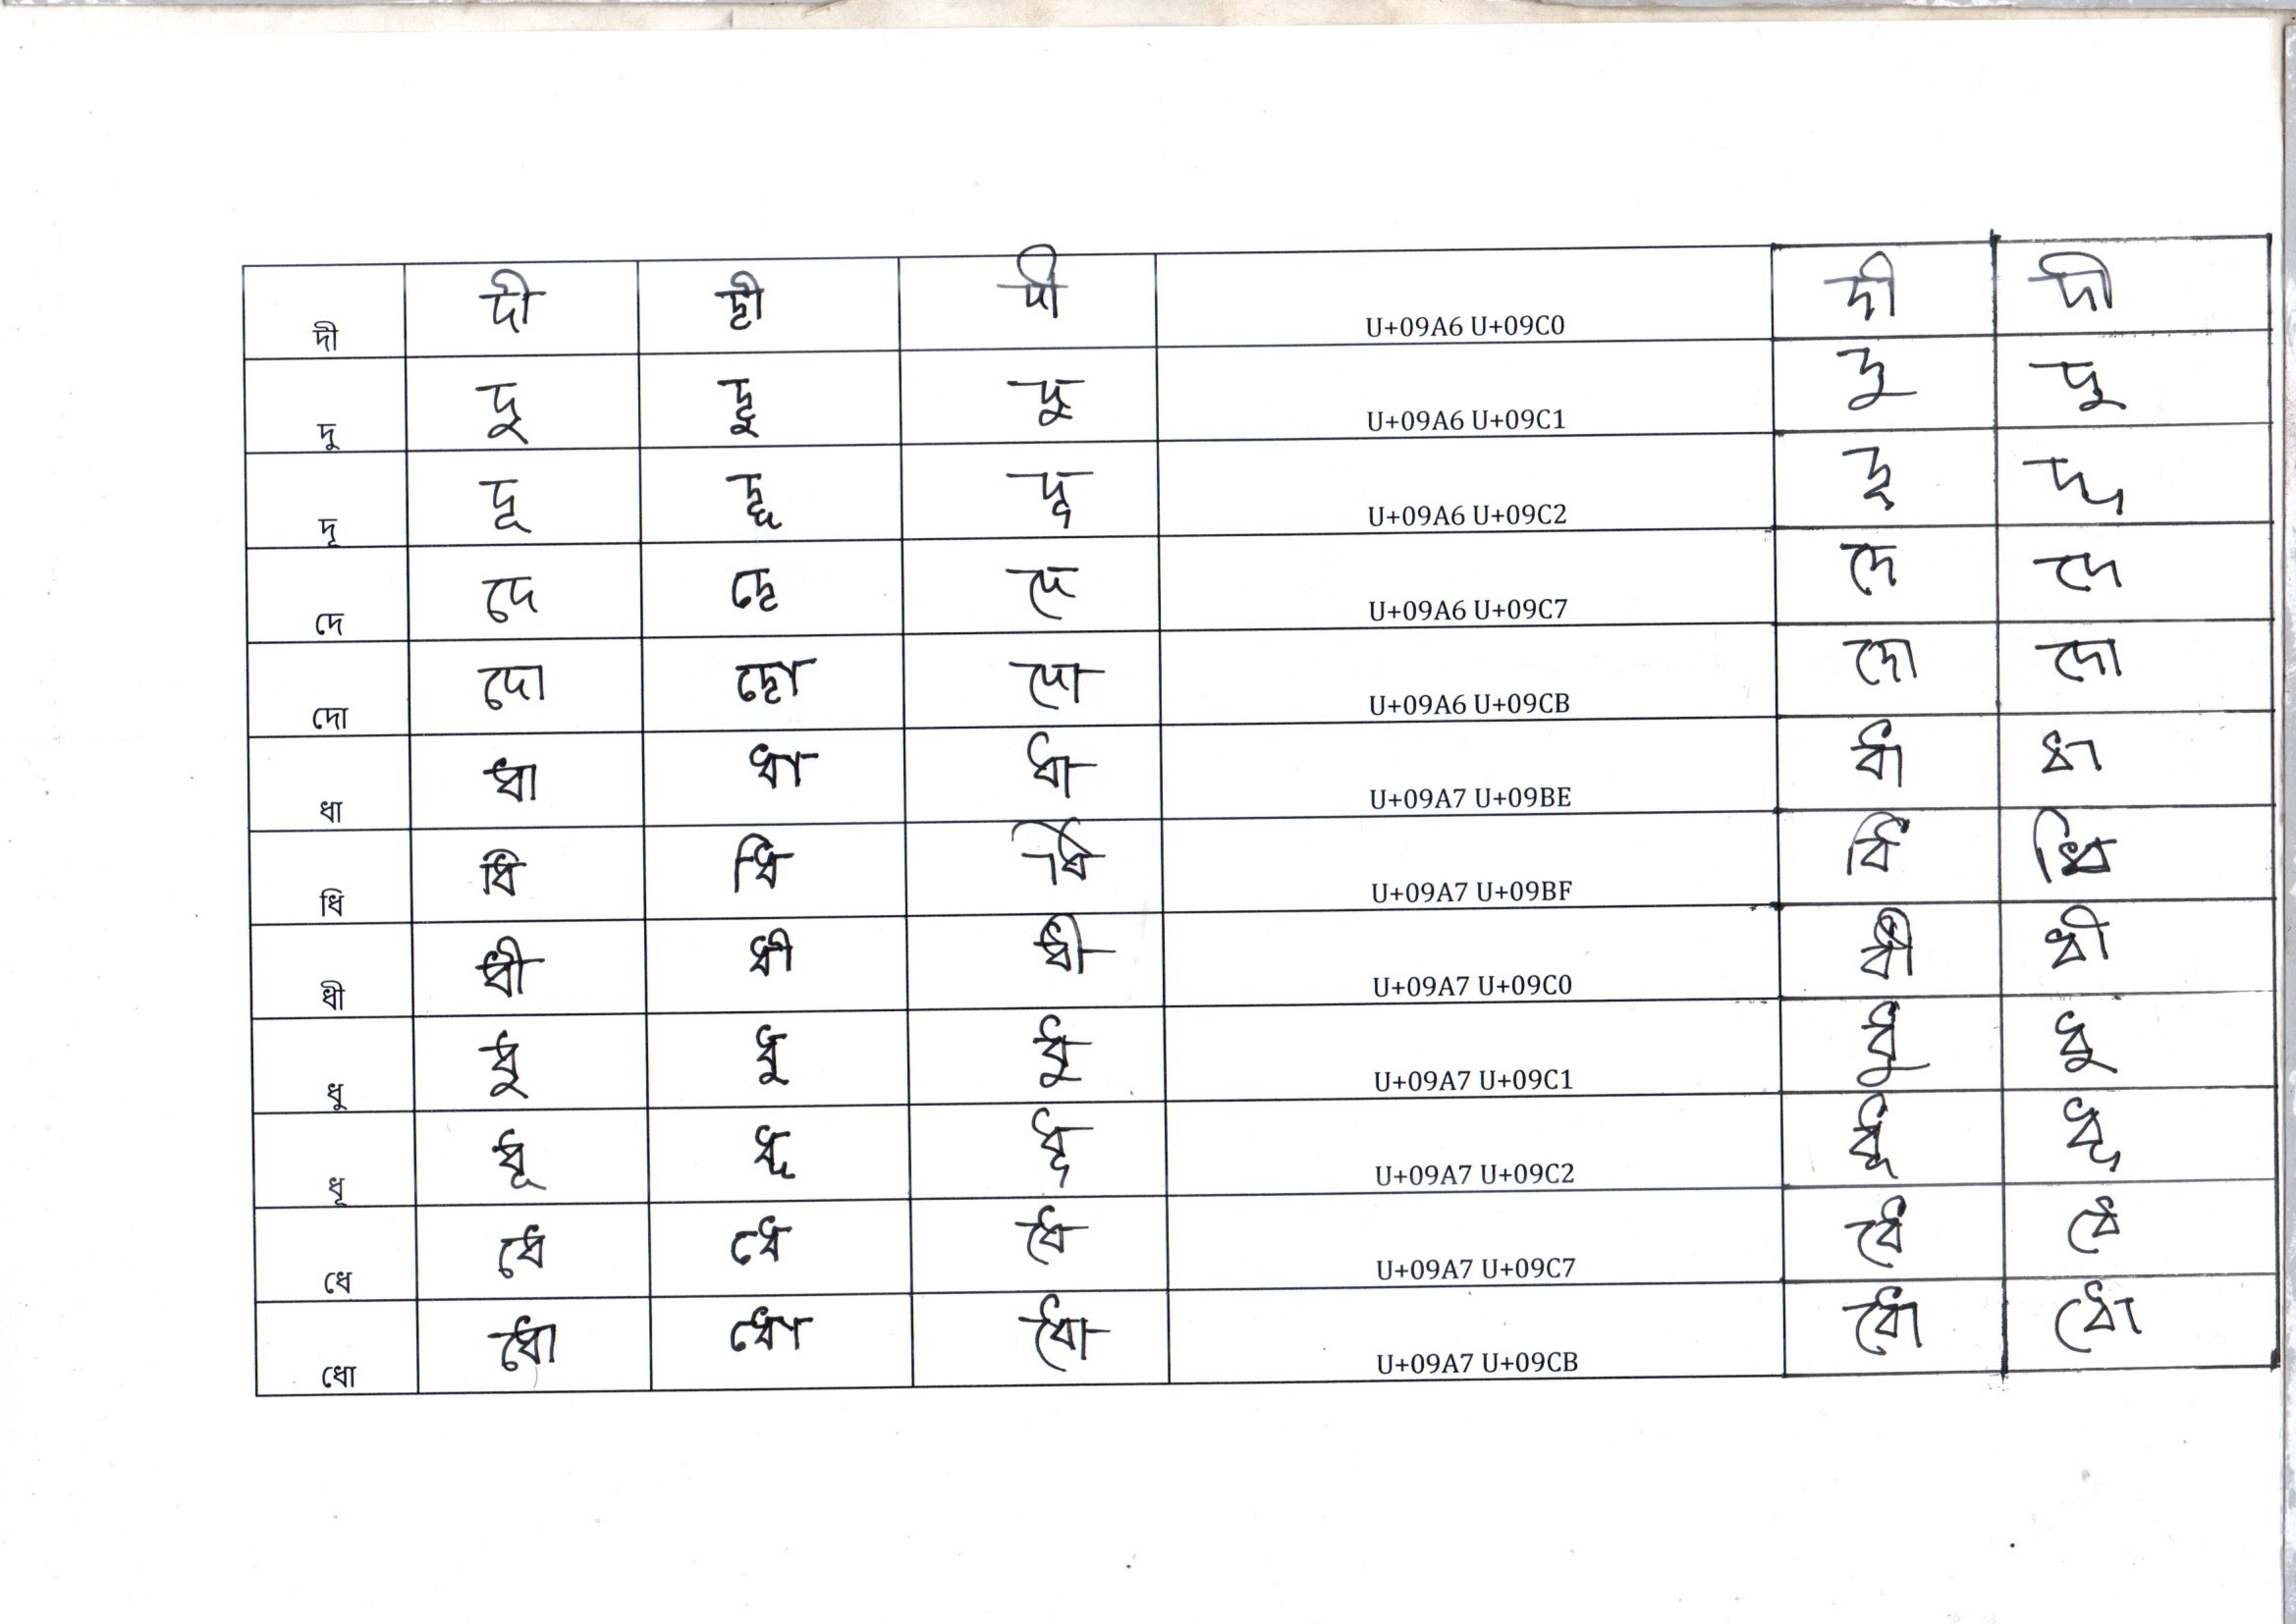 দী দী দী দী U+09A6 U+09C0 দী দী
দু দু দু দু U+09A6 U+09C1 দু দু
দূ দূ দূ দূ U+09A6 U+09C2 দূ দূ
দে দে দে দে U+09A6 U+09C7 দে দে
দো দো দো দো U+09A6 U+09CB দো দো
ধা ধা ধা ধা U+09A7 U+09BE ধা ধা
ধি ধি ধি ধি U+09A7 U+09BF ধি ধি
ধী ধী ধী ধী U+09A7 U+09C0 ধী ধী
ধু ধু ধু ধু U+09A7 U+09C1 ধু ধু
ধূ ধূ ধূ ধূ U+09A7 U+09C2 ধূ ধূ
ধে ধে ধে ধে U+09A7 U+09C7 ধে ধে
ধো ধো ধো ধো U+09A7 U+09CB ধো ধো